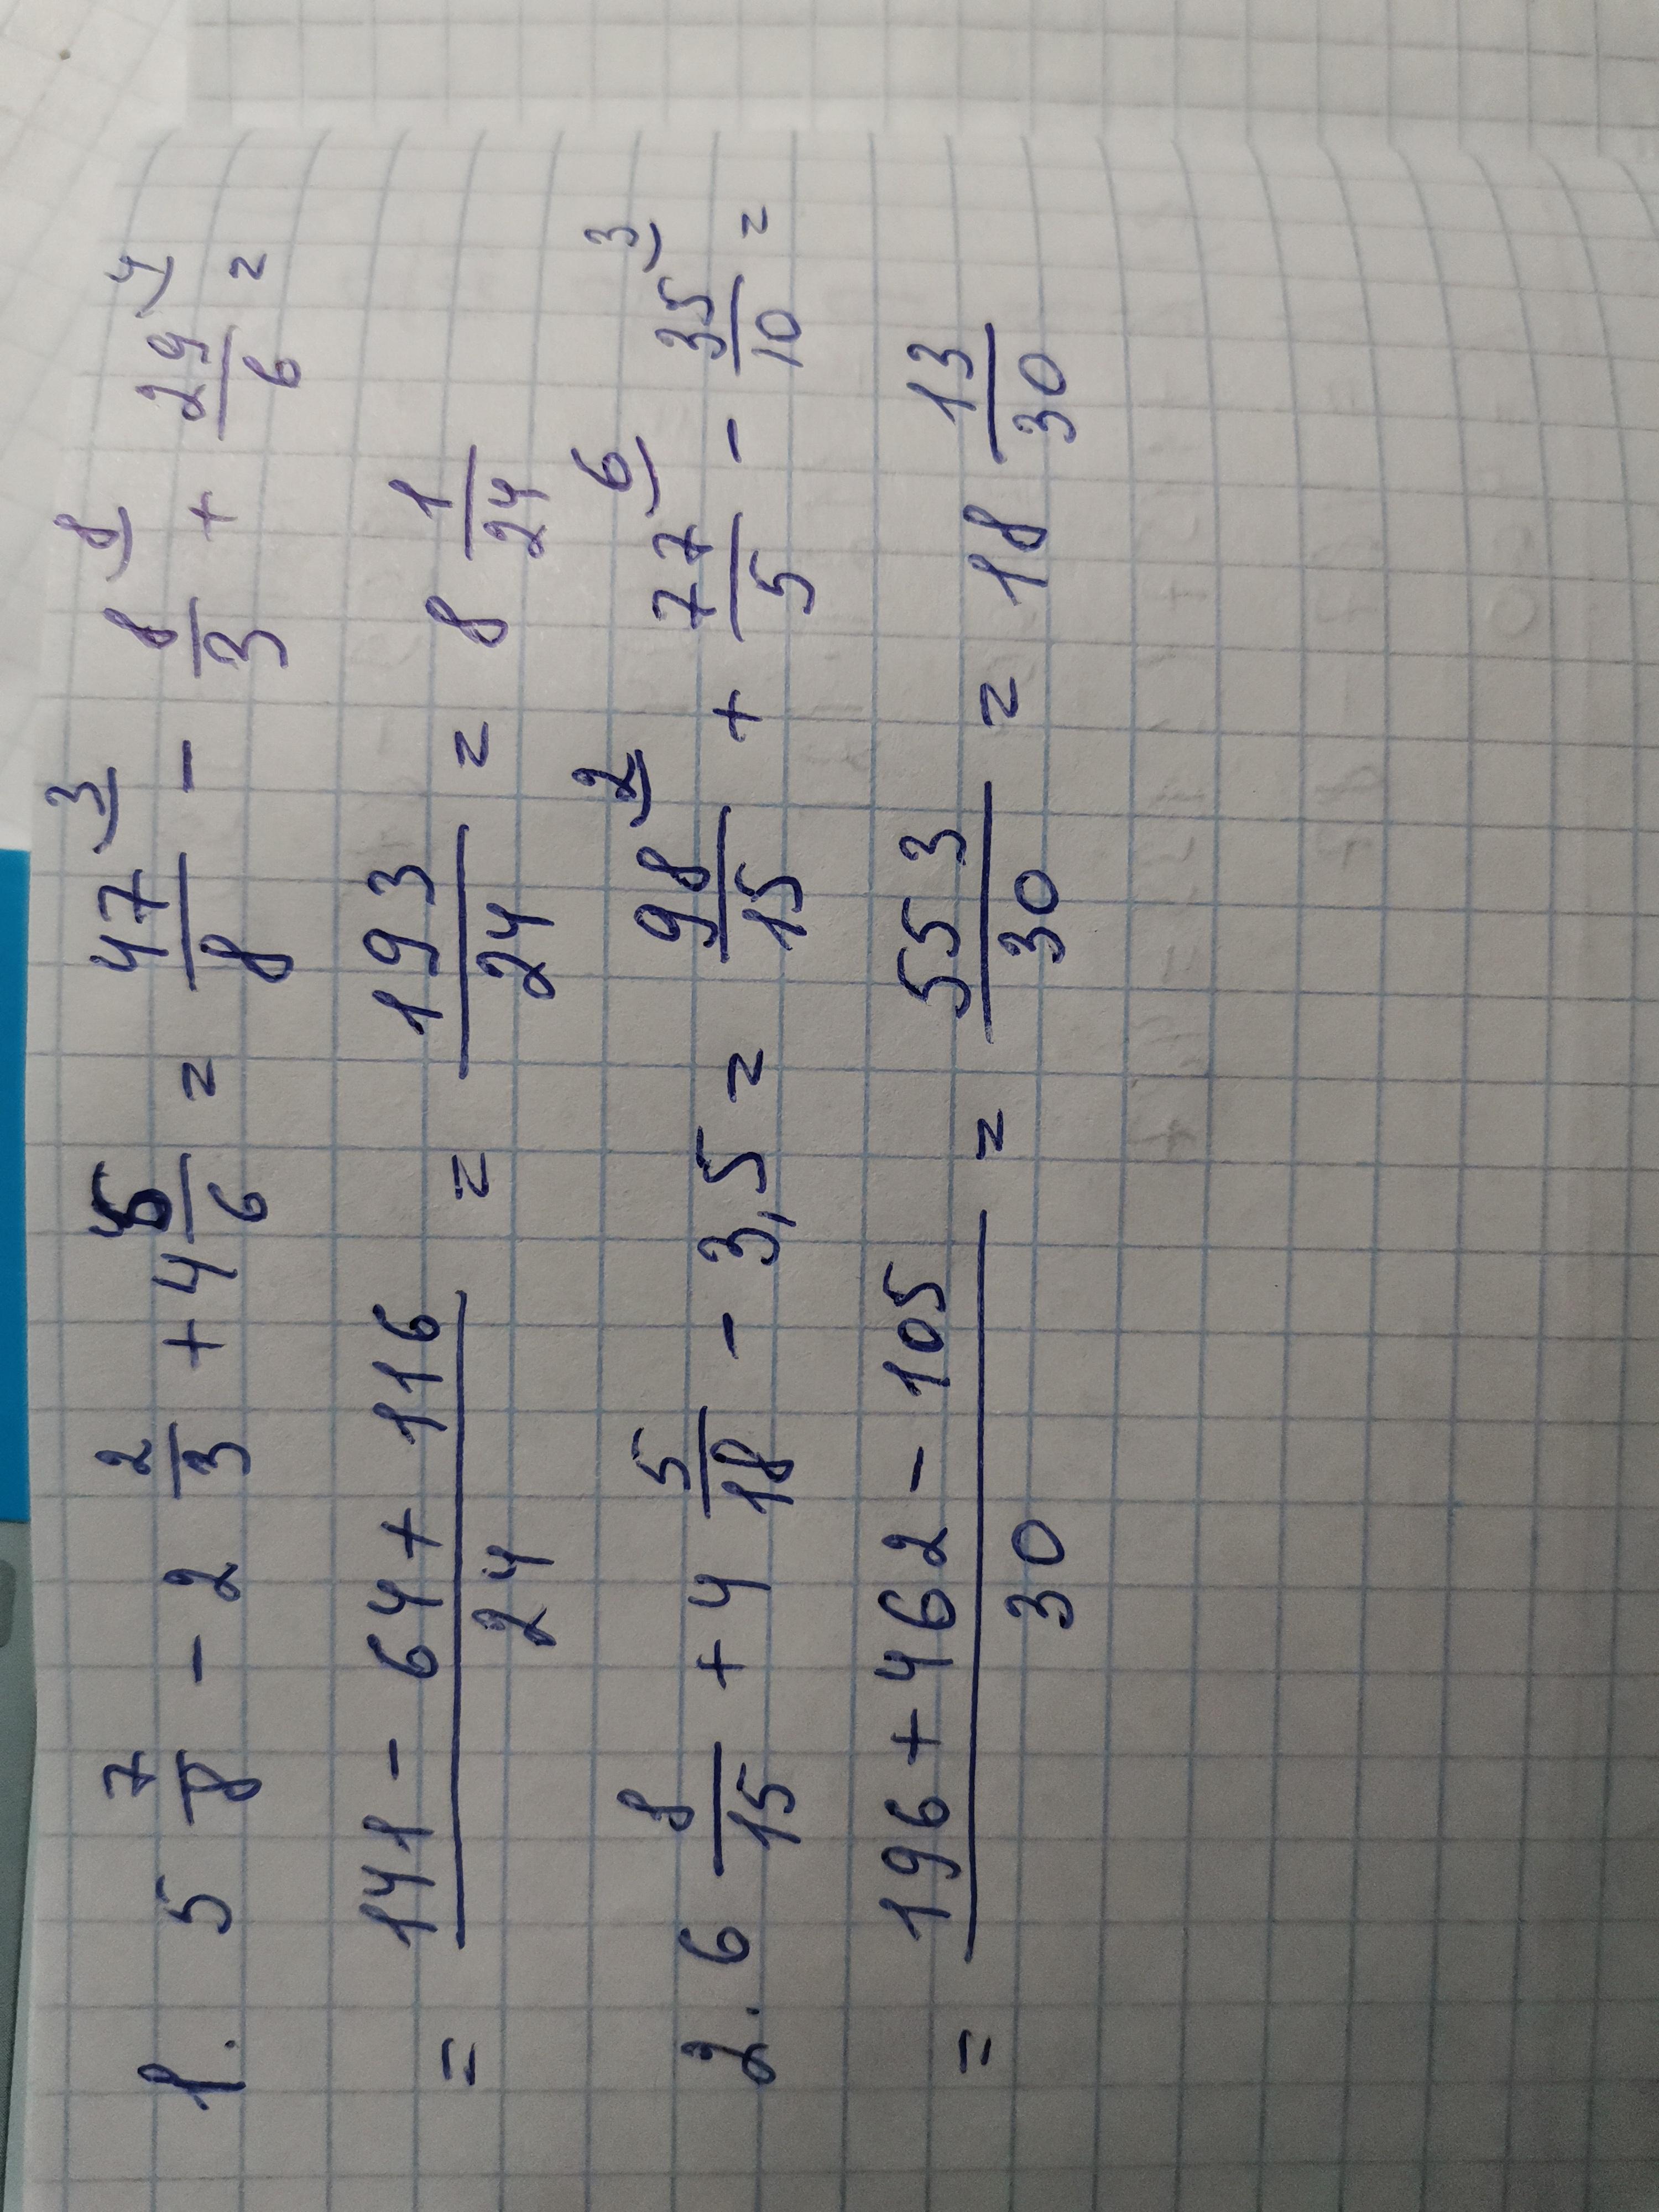 1. 5 7/8 - 2 2/3 + 4 5/6 = 47/8 ⁾³ - 8/3 ⁾⁸ + 29/6 ⁾⁴ =
= (141 - 64 + 116)/24 = 193/24 = 8 1/24
2. 6 8/15 + 4 5/18 - 3,5 = 98/15 ⁾² + 77/5 ⁾⁶ - 35/10 ⁾³ =
= (196 + 462 - 105)/30 = 553/30 = 18 13/30